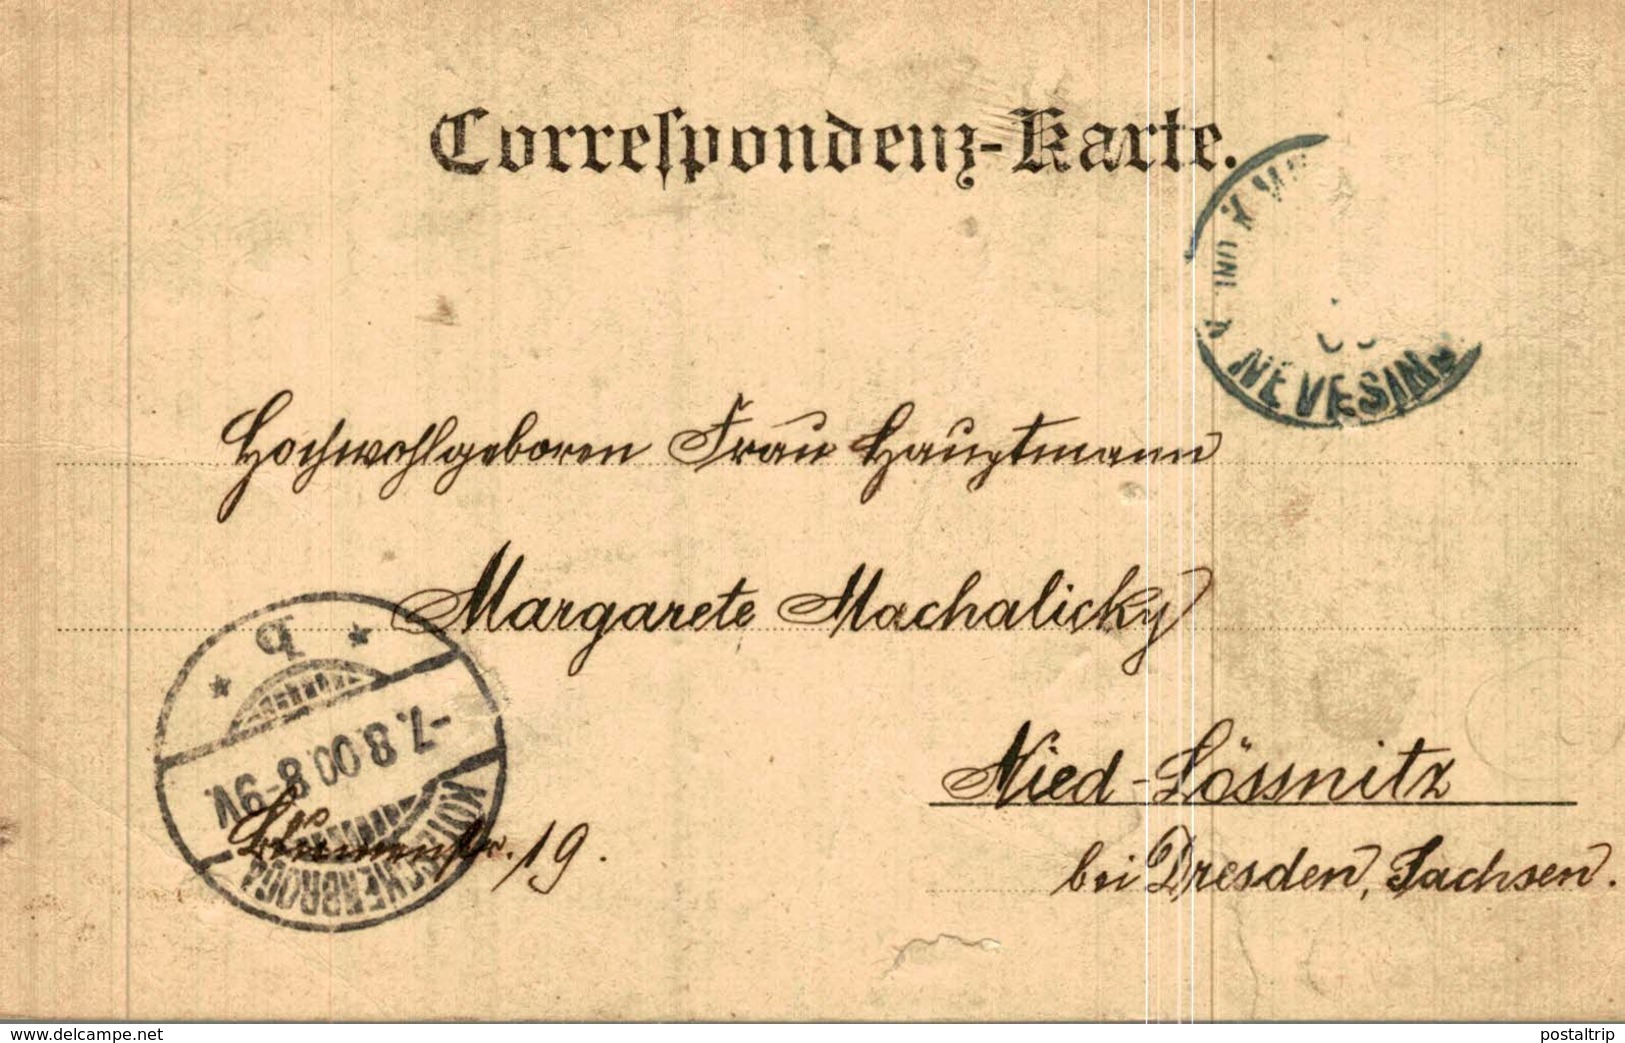 Correſpondenz-Karte.
K. UND K. MI
NEVESIN
Hochwohlgeboren Frau Hauptmann
Margarete Machalicky
b
-7.8.00.8-9V.
KÖTZSCHENBRODA
Nied-Lössnitz
str. 19.
bei Dresden, Sachsen.
www.delcampe.net
postaltrip